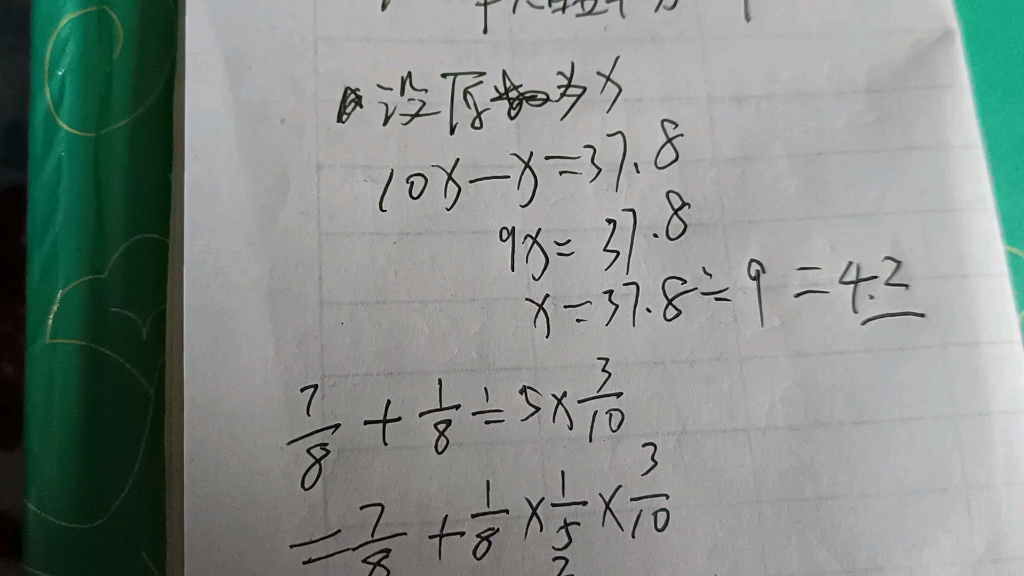 设原为x
10x-x=37.8
9x=37.8
x=37.8÷9=4.2
7/8+1/8÷5×3/10
=7/8+1/8×1/5×3/10